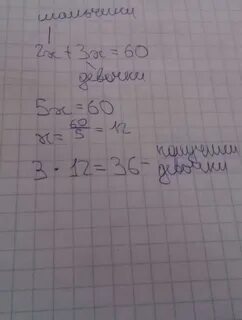 мальчики
2x + 3x = 60
девочки
5x = 60
x = 60/5 = 12
3 · 12 = 36 - получили
девочки